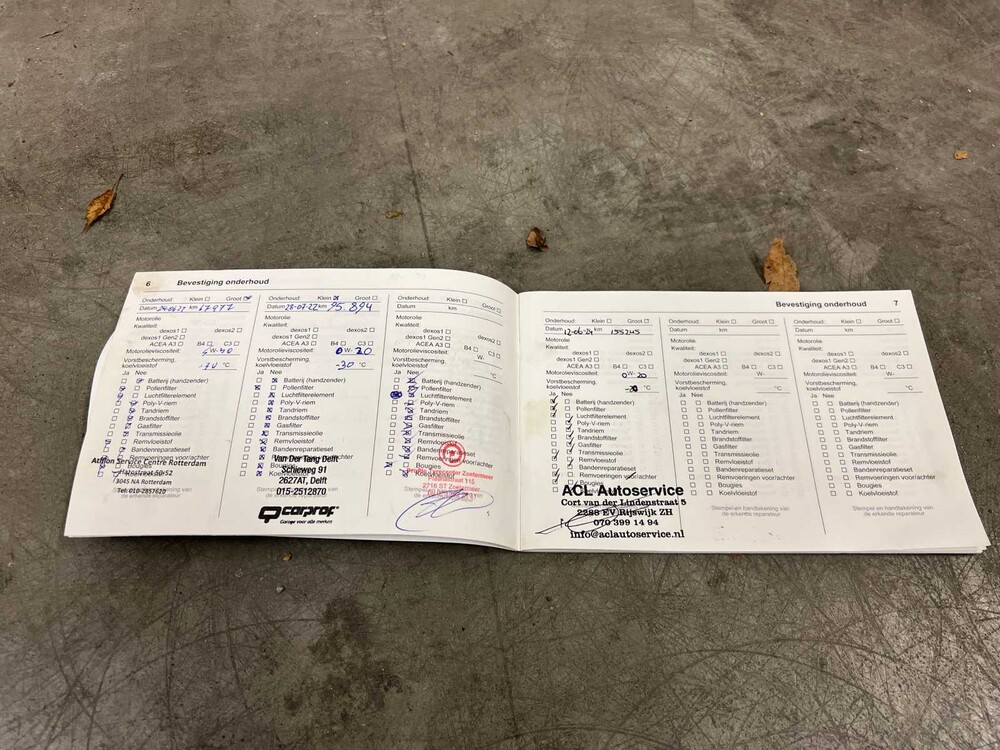 6 Bevestiging onderhoud
Onderhoud: Klein Groot
Datum km 67977
Motorolie
Kwaliteit:
dexos1 dexos2
dexos1 Gen2
ACEA A3 B4 C3
Motorolieviscositeit: 5 W- 40
Vorstbescherming,
koelvloeistof °C
Ja Nee
Batterij (handzender)
Pollenfilter
Luchtfilterelement
Poly-V-riem
Tandriem
Brandstoffilter
Gasfilter
Transmissieolie
Remvloeistof
Bandenreparatieset
Athlon Service Centre Rotterdam
Bougies
3045 NA Rotterdam
Tel: 010-2857620
Onderhoud: Klein Groot
Datum 28-07-22 km 95.894
Motorolie
Kwaliteit:
dexos1 dexos2
dexos1 Gen2
ACEA A3 B4 C3
Motorolieviscositeit: 0 W- 20
Vorstbescherming,
koelvloeistof -30 °C
Ja Nee
Batterij (handzender)
Pollenfilter
Luchtfilterelement
Poly-V-riem
Tandriem
Brandstoffilter
Gasfilter
Transmissieolie
Remvloeistof
Van Der Tang Delft
Schieweg 91
2627AT, Delft
015-2512870
carprof
Garage voor alle merken
Onderhoud: Klein Groot
Datum km
Motorolie
Kwaliteit:
dexos1 dexos2
dexos1 Gen2
ACEA A3 B4 C3
Motorolieviscositeit: W-
Vorstbescherming,
koelvloeistof °C
Ja Nee
Batterij (handzender)
Pollenfilter
Luchtfilterelement
Poly-V-riem
Tandriem
Brandstoffilter
Gasfilter
Transmissieolie
Remvloeistof
Bougies
2718 ST Zoetermeer
Bevestiging onderhoud 7
Onderhoud: Klein Groot
Datum 12-06-24 km 155245
Motorolie
Kwaliteit:
dexos1 dexos2
dexos1 Gen2
ACEA A3 B4 C3
Motorolieviscositeit: 0 W- 20
Vorstbescherming,
koelvloeistof °C
Ja Nee
Batterij (handzender)
Pollenfilter
Luchtfilterelement
Poly-V-riem
Tandriem
Brandstoffilter
Gasfilter
Transmissieolie
Remvloeistof
Bandenreparatieset
Remvoeringen voor/achter
Bougies
ACL Autoservice
Cort van der Lindenstraat 5
2288 EV Rijswijk ZH
070 399 14 94
info@aclautoservice.nl
Onderhoud: Klein Groot
Datum km
Motorolie
Kwaliteit:
dexos1 dexos2
dexos1 Gen2
ACEA A3 B4 C3
Motorolieviscositeit: W-
Vorstbescherming,
koelvloeistof °C
Ja Nee
Batterij (handzender)
Pollenfilter
Luchtfilterelement
Poly-V-riem
Tandriem
Brandstoffilter
Gasfilter
Transmissieolie
Remvloeistof
Bandenreparatieset
Remvoeringen voor/achter
Bougies
Koelvloeistof
Stempel en handtekening van
de erkende reparateur
Onderhoud: Klein Groot
Datum km
Motorolie
Kwaliteit:
dexos1 dexos2
dexos1 Gen2
ACEA A3 B4 C3
Motorolieviscositeit: W-
Vorstbescherming,
koelvloeistof °C
Ja Nee
Batterij (handzender)
Pollenfilter
Luchtfilterelement
Poly-V-riem
Tandriem
Brandstoffilter
Gasfilter
Transmissieolie
Remvloeistof
Bandenreparatieset
Remvoeringen voor/achter
Bougies
Koelvloeistof
Stempel en handtekening van
de erkende reparateur